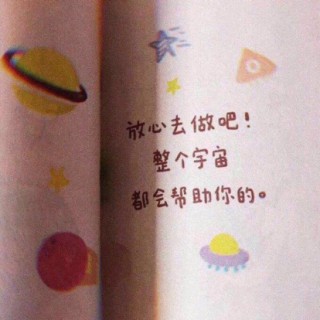 放心去做吧!
整个宇宙
都会帮助你的。